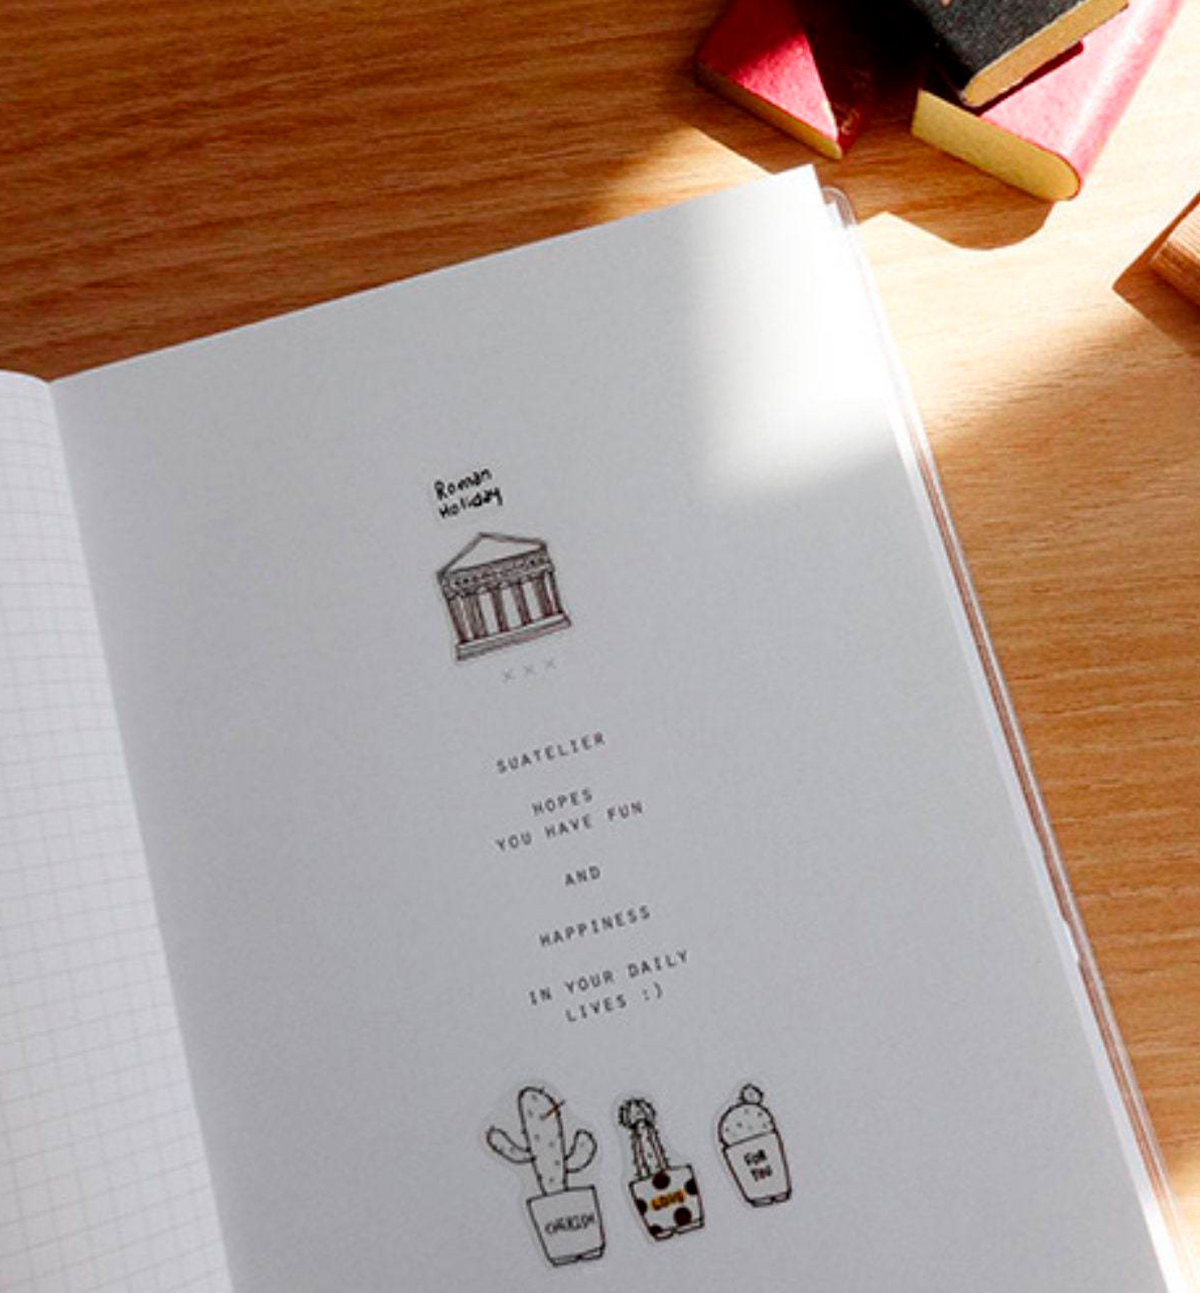 Roman
Holiday
×××
SUATELIER
HOPES
YOU HAVE FUN
AND
HAPPINESS
IN YOUR DAILY
LIVES :)
CHERISH
LOVE
FOR
YOU